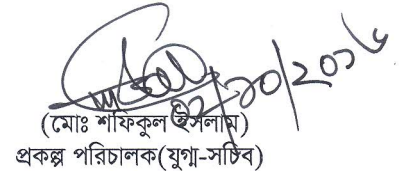 ০২/১০/২০১৬
(মোঃ শফিকুল ইসলাম)
প্রকল্প পরিচালক(যুগ্ম-সচিব)